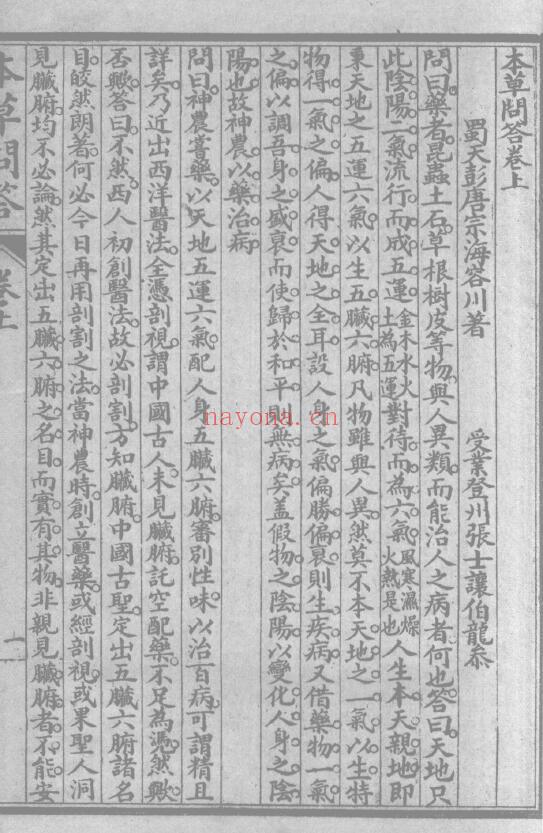 本草問答卷上
蜀天彭唐宗海容川著 受業登州張士讓伯龍叅
問曰藥者昆蟲土石草根樹皮等物與人異類而能治人之病者何也答曰天地只
此陰陽一氣流行而成五運金木水火土為五運對待而為六氣風寒濕燥火熱是也人生本天親地即
秉天地之五運六氣以生五臟六腑凡物雖與人異然莫不本天地之一氣以生特
物得一氣之偏人得天地之全耳設人身之氣偏勝偏衰則生疾病又借藥物一氣
之偏以調吾身之盛衰而使歸於和平則無病矣蓋假物之陰陽以變化人身之陰
陽也故神農以藥治病
問曰神農嘗藥以天地五運六氣配人身五臟六腑審別性味以治百病可謂精且
詳矣乃近出西洋醫法全憑剖視謂中國古人未見臟腑託空配藥不足為憑然歟
否歟答曰不然西人初創醫法故必剖割方知臟腑中國古聖定出五臟六腑諸名
目皎然朗著何必今日再用剖割之法當神農時創立醫藥或經剖視或果聖人洞
見臟腑均不必論然其定出五臟六腑之名目而實有其物非親見臟腑者不能安
本草問答
卷上
一
nayona.cn